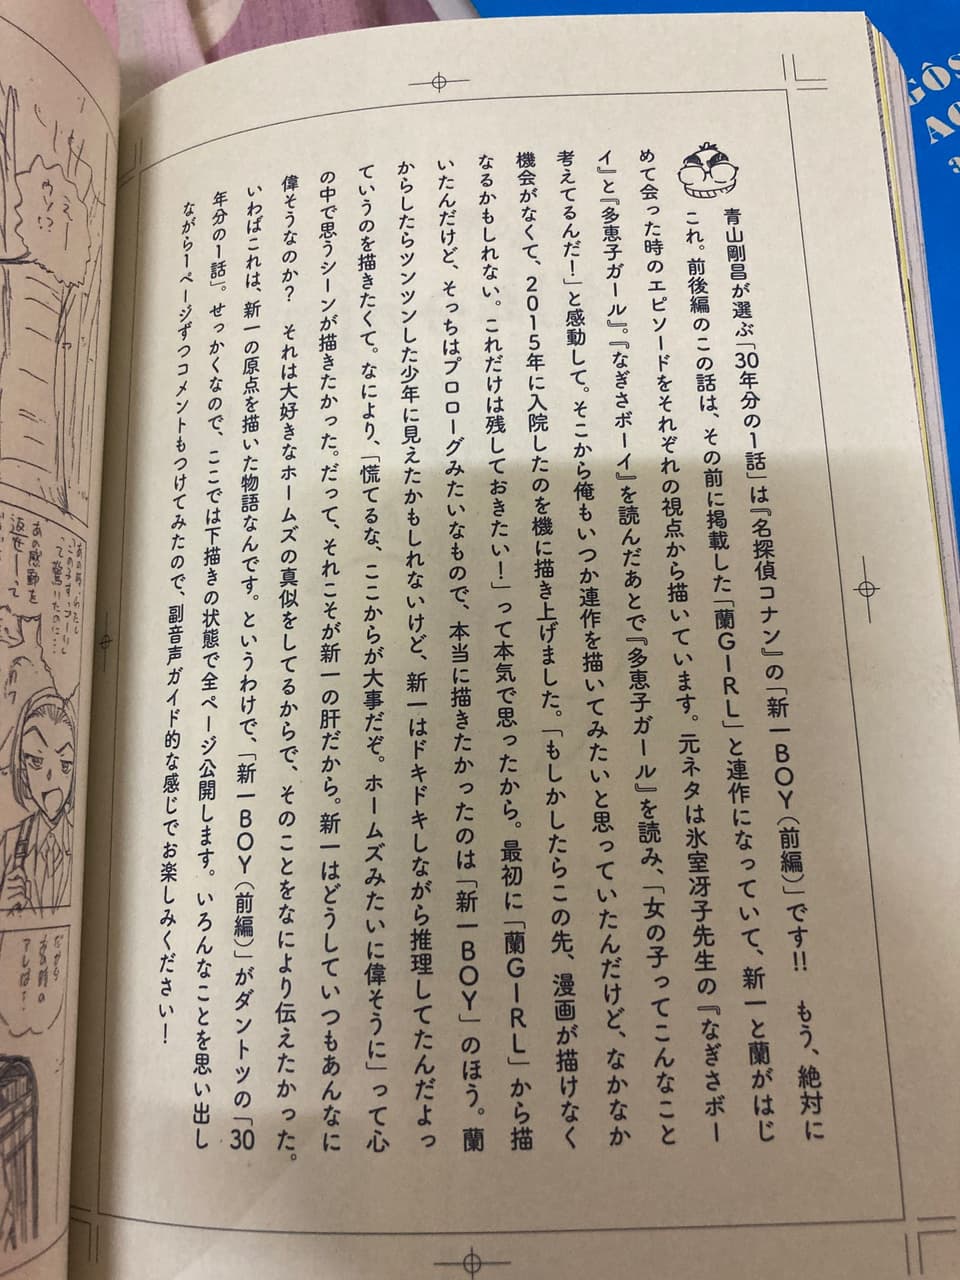 青山剛昌が選ぶ「30年分の1話」は『名探偵コナン』の「新一BOY(前編)」です!! もう、絶対に
これ。前後編のこの話は、その前に掲載した「蘭GIRL」と連作になっていて、新一と蘭がはじ
めて会った時のエピソードをそれぞれの視点から描いています。元ネタは氷室冴子先生の『なぎさボー
イ』と『多恵子ガール』。『なぎさボーイ』を読んだあとで『多恵子ガール』を読み、「女の子ってこんなこと
考えてるんだ!」と感動して。そこから俺もいつか連作を描いてみたいと思っていたんだけど、なかなか
機会がなくて、2015年に入院したのを機に描き上げました。「もしかしたらこの先、漫画が描けなく
なるかもしれない。これだけは残しておきたい!」って本気で思ったから。最初に「蘭GIRL」から描
いたんだけど、そっちはプロローグみたいなもので、本当に描きたかったのは「新一BOY」のほう。蘭
からしたらツンツンした少年に見えたかもしれないけど、新一はドキドキしながら推理してたんだよっ
ていうのを描きたくて。なにより、「慌てるな、ここからが大事だぞ。ホームズみたいに偉そうに」って心
の中で思うシーンが描きたかった。だって、それこそが新一の肝だから。新一はどうしていつもあんなに
偉そうなのか? それは大好きなホームズの真似をしてるからで、そのことをなにより伝えたかった。
いわばこれは、新一の原点を描いた物語なんです。というわけで、「新一BOY(前編)」がダントツの「30
年分の1話」。せっかくなので、ここでは下描きの状態で全ページ公開します。いろんなことを思い出し
ながら1ページずつコメントもつけてみたので、副音声ガイド的な感じでお楽しみください!
えー
ウソ!?
あの感動を
返せーって
だから